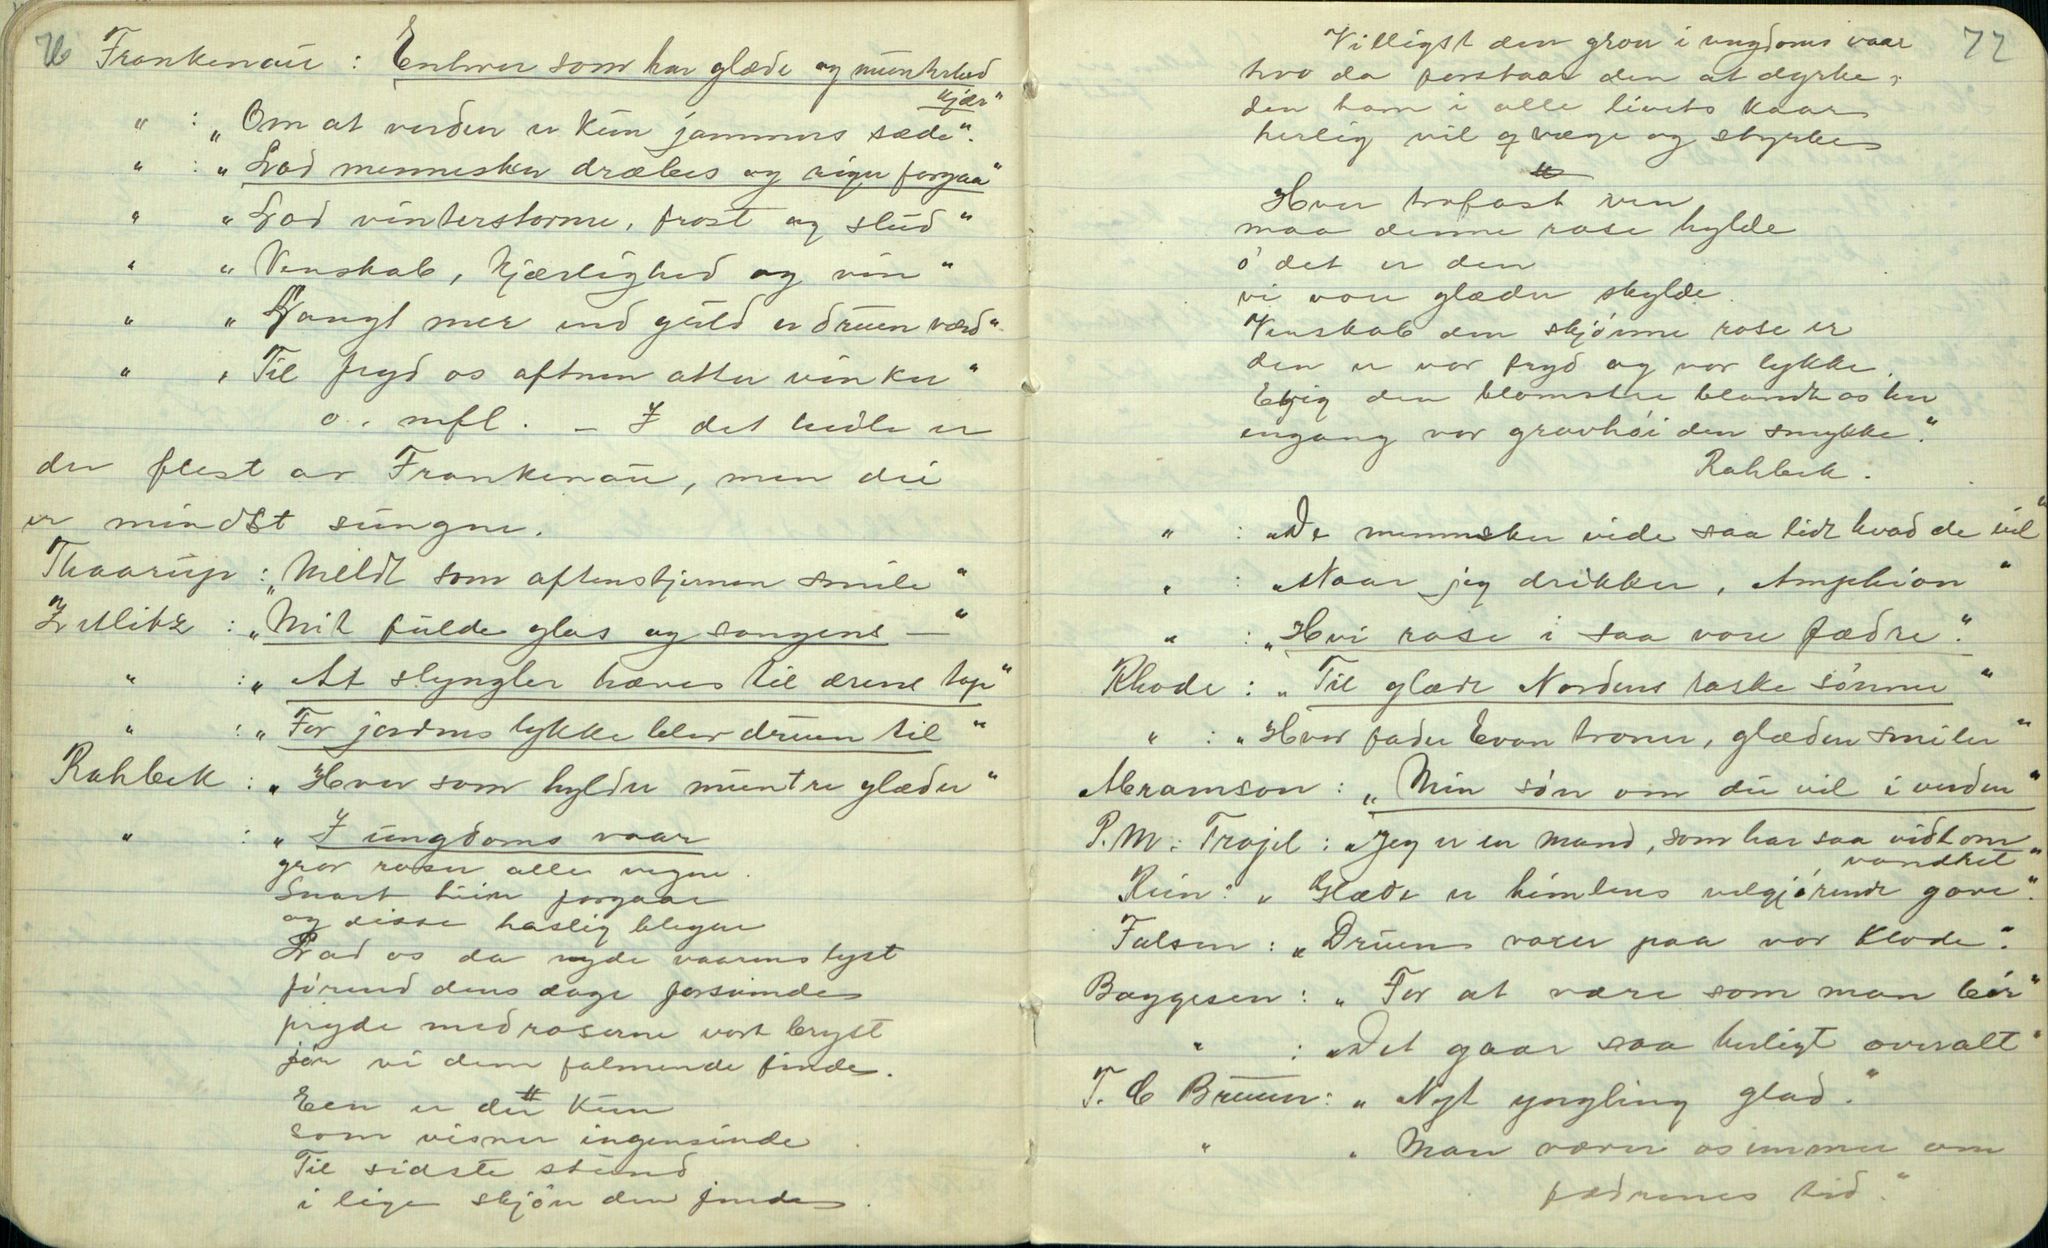 76
Frankenau : Enhver som har glæde og munterhed
kjær"
" : „Om at verden er kun jammers sæde".
" : „Lad mennesker dræbes og riger forgaa"
" „Lad vinterstorme, frost og slud"
" „Venskab, kjærlighed og vin"
" „Langt mer end guld er druen værd".
" „Til fryd os aftnen atter vinker"
o. mfl. – I det hele er
der flest av Frankenau, men de
er mindst sungne.
Thaarup : „Mildt som aftenstjernen smile"
Zetlitz : „Mit fulde glas og sangens — "
" : „At slyngler hæves til ærens top"
" : „For jordens lykke blev druen til"
Rahbek : „Hver som hylder muntre glæder"
" : „I ungdoms vaar
gror roser alle vegne.
Snart hiin forgaar
og disse haslig blegne
Lad os da nyde vaarens lyst
førend dens dage forsvinde
pryde med roserne vort bryst
før vi dem falmende finde.
Een er der kun
som visner ingensinde
Til sidste stund
i lige skjøn den findes.
77
Villigst den gror i ungdoms vaar
hvo da forstaar den at dyrke,
den ham i alle livets kaar
herlig vil qvæge og styrke
Hver trofast ven
maa denne rose hylde
ó det er den
vi vore glæder skylde.
Venskab den skjønne rose er
den er vor fryd og vor lykke.
Evig den blomstre blandt os her
engang vor gravhøi den smykke."
Rahbek.
" : „De mennesker vide saa lidt hvad de vil"
" : „Naar jeg drikker, Amphion"
" : „Hvi rose i saa vore fædre".
Rhode : „Til glæde Nordens raske sønner"
" : „Hvor fader Evan troner, glæden smiler"
Abramson : „Min søn om du vil i verden"
P. M. Trojel : „Jeg er en mand, som har saa vidt om
vandket"
Rein : „Glæde er himlens velgjørende gave".
Falsen : „Druen voxer paa vor klode".
Baggesen : „For at være som man bør"
" : „Det gaar saa herligt overalt"
T. C Bruun : „Nyt yngling glad."
" „Man rører os immer om
fædrenes tid."